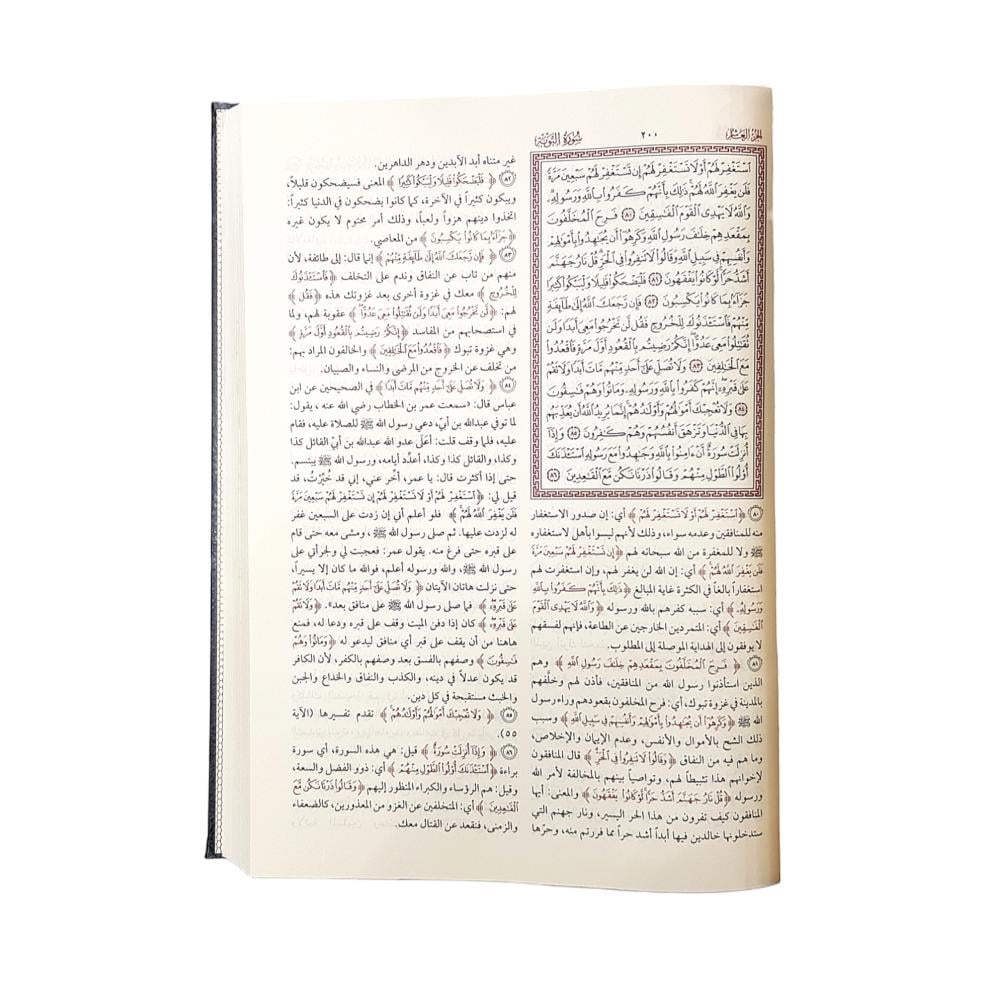 الجزء العاشر ٢٠٠ سورة التوبة
ٱسْتَغْفِرْ لَهُمْ أَوْ لَا تَسْتَغْفِرْ لَهُمْ إِن تَسْتَغْفِرْ لَهُمْ سَبْعِينَ مَرَّةً
فَلَن يَغْفِرَ ٱللَّهُ لَهُمْ ذَٰلِكَ بِأَنَّهُمْ كَفَرُوا۟ بِٱللَّهِ وَرَسُولِهِۦ
وَٱللَّهُ لَا يَهْدِى ٱلْقَوْمَ ٱلْفَٰسِقِينَ ٨٠ فَرِحَ ٱلْمُخَلَّفُونَ
بِمَقْعَدِهِمْ خِلَٰفَ رَسُولِ ٱللَّهِ وَكَرِهُوٓا۟ أَن يُجَٰهِدُوا۟ بِأَمْوَٰلِهِمْ
وَأَنفُسِهِمْ فِى سَبِيلِ ٱللَّهِ وَقَالُوا۟ لَا تَنفِرُوا۟ فِى ٱلْحَرِّ قُلْ نَارُ جَهَنَّمَ
أَشَدُّ حَرًّا لَّوْ كَانُوا۟ يَفْقَهُونَ ٨١ فَلْيَضْحَكُوا۟ قَلِيلًا وَلْيَبْكُوا۟ كَثِيرًا
جَزَآءًۢ بِمَا كَانُوا۟ يَكْسِبُونَ ٨٢ فَإِن رَّجَعَكَ ٱللَّهُ إِلَىٰ طَآئِفَةٍ
مِّنْهُمْ فَٱسْتَـْٔذَنُوكَ لِلْخُرُوجِ فَقُل لَّن تَخْرُجُوا۟ مَعِىَ أَبَدًا وَلَن
تُقَٰتِلُوا۟ مَعِىَ عَدُوًّا إِنَّكُمْ رَضِيتُم بِٱلْقُعُودِ أَوَّلَ مَرَّةٍ فَٱقْعُدُوا۟
مَعَ ٱلْخَٰلِفِينَ ٨٣ وَلَا تُصَلِّ عَلَىٰٓ أَحَدٍ مِّنْهُم مَّاتَ أَبَدًا وَلَا تَقُمْ
عَلَىٰ قَبْرِهِۦٓ إِنَّهُمْ كَفَرُوا۟ بِٱللَّهِ وَرَسُولِهِۦ وَمَاتُوا۟ وَهُمْ فَٰسِقُونَ
٨٤ وَلَا تُعْجِبْكَ أَمْوَٰلُهُمْ وَأَوْلَٰدُهُمْ إِنَّمَا يُرِيدُ ٱللَّهُ أَن يُعَذِّبَهُم
بِهَا فِى ٱلدُّنْيَا وَتَزْهَقَ أَنفُسُهُمْ وَهُمْ كَٰفِرُونَ ٨٥ وَإِذَآ
أُنزِلَتْ سُورَةٌ أَنْ ءَامِنُوا۟ بِٱللَّهِ وَجَٰهِدُوا۟ مَعَ رَسُولِهِ ٱسْتَـْٔذَنَكَ
أُو۟لُوا۟ ٱلطَّوْلِ مِنْهُمْ وَقَالُوا۟ ذَرْنَا نَكُن مَّعَ ٱلْقَٰعِدِينَ ٨٦
٨٠ ﴿ٱسْتَغْفِرْ لَهُمْ أَوْ لَا تَسْتَغْفِرْ لَهُمْ﴾ أي: إن صدور الاستغفار
منه للمنافقين وعدمه سواء، وذلك لأنهم ليسوا بأهل لاستغفاره
ﷺ ولا للمغفرة من الله سبحانه لهم ﴿إِن تَسْتَغْفِرْ لَهُمْ سَبْعِينَ مَرَّةً
فَلَن يَغْفِرَ ٱللَّهُ لَهُمْ﴾ أي: إن الله لن يغفر لهم، وإن استغفرت لهم
استغفاراً بالغاً في الكثرة غاية المبالغ ﴿ذَٰلِكَ بِأَنَّهُمْ كَفَرُوا۟ بِٱللَّهِ
وَرَسُولِهِۦ﴾ أي: سببه كفرهم بالله ورسوله ﴿وَٱللَّهُ لَا يَهْدِى ٱلْقَوْمَ
ٱلْفَٰسِقِينَ﴾ أي: المتمردين الخارجين عن الطاعة، فإنهم لفسقهم
لا يوفقون إلى الهداية الموصلة إلى المطلوب.
٨١ ﴿فَرِحَ ٱلْمُخَلَّفُونَ بِمَقْعَدِهِمْ خِلَٰفَ رَسُولِ ٱللَّهِ﴾ وهم
الذين استأذنوا رسول الله من المنافقين، فأذن لهم وخلَّفهم
بالمدينة في غزوة تبوك، أي: فرح المخلفون بقعودهم وراء رسول
الله ﷺ ﴿وَكَرِهُوٓا۟ أَن يُجَٰهِدُوا۟ بِأَمْوَٰلِهِمْ وَأَنفُسِهِمْ فِى سَبِيلِ ٱللَّهِ﴾ وسبب
ذلك الشح بالأموال والأنفس، وعدم الإيمان والإخلاص،
وما هم فيه من النفاق ﴿وَقَالُوا۟ لَا تَنفِرُوا۟ فِى ٱلْحَرِّ﴾ قال المنافقون
لإخوانهم هذا تثبيطاً لهم، وتواصياً بينهم بالمخالفة لأمر الله
ورسوله ﴿قُلْ نَارُ جَهَنَّمَ أَشَدُّ حَرًّا لَّوْ كَانُوا۟ يَفْقَهُونَ﴾ والمعنى: أيها
المنافقون كيف تفرون من هذا الحر اليسير، ونار جهنم التي
ستدخلونها خالدين فيها أبداً أشد حراً مما فررتم منه، وحرّها
غير متناه أبد الآبدين ودهر الداهرين.
٨٢ ﴿فَلْيَضْحَكُوا۟ قَلِيلًا وَلْيَبْكُوا۟ كَثِيرًا﴾ المعنى فسيضحكون قليلاً،
ويبكون كثيراً في الآخرة، كما كانوا يضحكون في الدنيا كثيراً:
اتخذوا دينهم هزواً ولعباً، وذلك أمر محتوم لا يكون غيره
﴿جَزَآءًۢ بِمَا كَانُوا۟ يَكْسِبُونَ﴾ من المعاصي.
٨٣ ﴿فَإِن رَّجَعَكَ ٱللَّهُ إِلَىٰ طَآئِفَةٍ مِّنْهُمْ﴾ إنما قال: إلى طائفة، لأن
منهم من تاب عن النفاق وندم على التخلف ﴿فَٱسْتَـْٔذَنُوكَ
لِلْخُرُوجِ﴾ معك في غزوة أخرى بعد غزوتك هذه ﴿فَقُل﴾
لهم: ﴿لَّن تَخْرُجُوا۟ مَعِىَ أَبَدًا وَلَن تُقَٰتِلُوا۟ مَعِىَ عَدُوًّا﴾ عقوبة لهم، ولما
في استصحابهم من المفاسد ﴿إِنَّكُمْ رَضِيتُم بِٱلْقُعُودِ أَوَّلَ مَرَّةٍ﴾
وهي غزوة تبوك ﴿فَٱقْعُدُوا۟ مَعَ ٱلْخَٰلِفِينَ﴾ والخالفون المراد بهم:
من تخلف عن الخروج من المرضى والنساء والصبيان.
٨٤ ﴿وَلَا تُصَلِّ عَلَىٰٓ أَحَدٍ مِّنْهُم مَّاتَ أَبَدًا﴾ في الصحيحين عن ابن
عباس قال: «سمعت عمر بن الخطاب رضي الله عنه ، يقول:
لما توفي عبدالله بن أبيّ، دعي رسول الله ﷺ للصلاة عليه، فقام
عليه، فلما وقف قلت: أعَلَى عدو الله عبدالله بن أبيّ القائل كذا
وكذا، والقائل كذا وكذا، أعدِّد أيامه، ورسول الله ﷺ يبتسم.
حتى إذا أكثرت قال: يا عمر، أخّر عني، إني قد خُيِّرْتُ، قد
قيل لي: ﴿ٱسْتَغْفِرْ لَهُمْ أَوْ لَا تَسْتَغْفِرْ لَهُمْ إِن تَسْتَغْفِرْ لَهُمْ سَبْعِينَ مَرَّةً
فَلَن يَغْفِرَ ٱللَّهُ لَهُمْ﴾ فلو أعلم أني إن زدت على السبعين غفر
له لزدت عليها. ثم صلى رسول الله ﷺ ، ومشى معه حتى قام
على قبره حتى فرغ منه. يقول عمر: فعجبت لي ولجرأتي على
رسول الله ﷺ، والله ورسوله أعلم، فوالله ما كان إلا يسيراً،
حتى نزلت هاتان الآيتان ﴿وَلَا تُصَلِّ عَلَىٰٓ أَحَدٍ مِّنْهُم مَّاتَ أَبَدًا وَلَا تَقُمْ
عَلَىٰ قَبْرِهِۦٓ﴾ فما صلى رسول الله ﷺ على منافق بعد». ﴿وَلَا تَقُمْ
عَلَىٰ قَبْرِهِۦٓ﴾ كان إذا دفن الميت وقف على قبره ودعا له، فمنع
هاهنا من أن يقف على قبر أي منافق ليدعو له ﴿وَمَاتُوا۟ وَهُمْ
فَٰسِقُونَ﴾ وصفهم بالفسق بعد وصفهم بالكفر، لأن الكافر
قد يكون عدلاً في دينه، والكذب والنفاق والخداع والجبن
والخبث مستقبحة في كل دين.
٨٥ ﴿وَلَا تُعْجِبْكَ أَمْوَٰلُهُمْ وَأَوْلَٰدُهُمْ﴾ تقدم تفسيرها (الآية
٥٥).
٨٦ ﴿وَإِذَآ أُنزِلَتْ سُورَةٌ﴾ قيل: هي هذه السورة، أي سورة
براءة ﴿ٱسْتَـْٔذَنَكَ أُو۟لُوا۟ ٱلطَّوْلِ مِنْهُمْ﴾ أي: ذوو الفضل والسعة،
وقيل: هم الرؤساء والكبراء المنظور إليهم ﴿وَقَالُوا۟ ذَرْنَا نَكُن مَّعَ
ٱلْقَٰعِدِينَ﴾ أي: المتخلفين عن الغزو من المعذورين، كالضعفاء
والزمنى، فنقعد عن القتال معك.